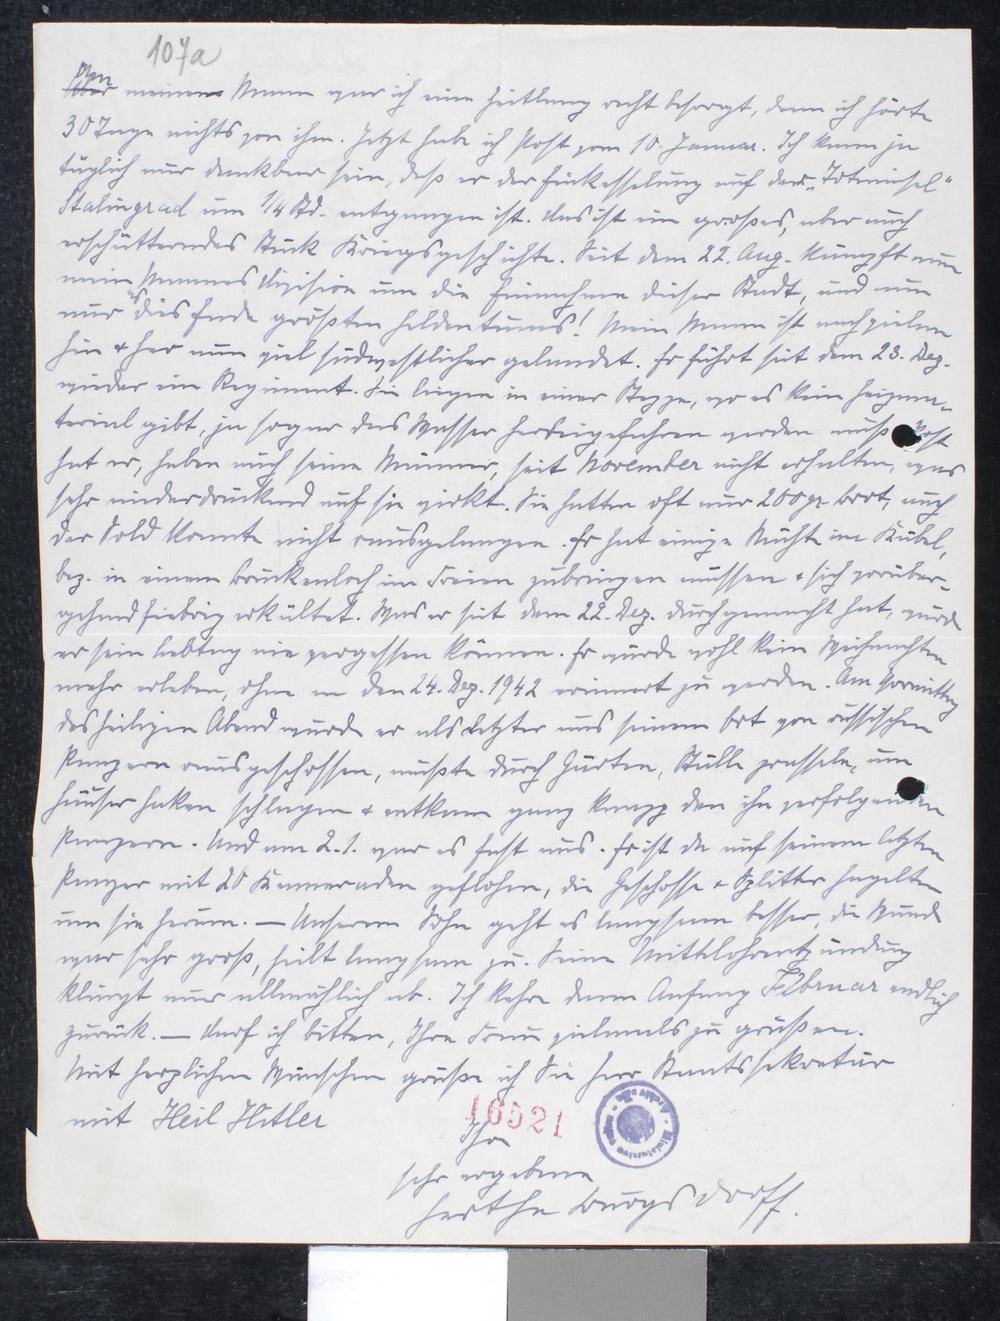 107a
Um
Über meinen Mann war ich eine Zeitlang recht besorgt, denn ich hörte
30 Tage nichts von ihm. Jetzt habe ich Post vom 10. Januar. Ich kann ja
täglich nur dankbar sein, daß er der Einkesselung auf der „Toteninsel"
Stalingrad um 1/4 Std. entgangen ist. Das ist ein großes, aber auch
erschütterndes Stück Kriegsgeschichte. Seit dem 22. Aug. kämpft nun
mein Mannes Division um die Einnahme dieser Stadt, und nun
nur dies Ende größten Heldentums! Mein Mann ist nach vielem
hin + her nun viel südwestlicher gelandet. Er führt seit dem 23. Dez.
wieder ein Regiment. Sie liegen in einer Steppe, wo es kein Heizma-
terial gibt, ja sogar das Wasser herbeigefahren werden muß. Post
hat er, haben auch seine Männer, seit November nicht erhalten, was
sehr niederdrückend auf sie wirkt. Sie hatten oft nur 200 gr. Brot, auch
der Sold konnte nicht rausgelangen. Er hat einige Nächte im Kübel,
bez. in einem Brückenloch im Freien zubringen müssen + sich vorüber-
gehend fiebrig erkältet. Was er seit dem 22. Dez. durchgemacht hat, würde
er sein Lebtag nie vergessen können. Er würde wohl kein Weihnachten
mehr erleben, ohne an den 24. Dez. 1942 erinnert zu werden. Am Vormittag
des heiligen Abend wurde er als Letzter aus seinem Ort von russischen
Panzern rausgeschossen, mußte durch Gärten, Ställe prasseln, um
Häuser Haken schlagen + entkam ganz knapp den ihn verfolgenden
Panzern. Und am 2.1. war es fast aus. Er ist da auf seinem letzten
Panzer mit 20 Kameraden geflohen, die Geschosse + Splitter hagelten
um sie herum. — Unserem Sohn geht es langsam besser, die Wunde
war sehr groß, heilt langsam zu. Seine Mittelohrentzündung
klingt nur allmählich ab. Ich kehre dann Anfang Februar endlich
zurück. — Darf ich bitten, Ihre Frau vielmals zu grüßen.
Mit herzlichen Wünschen grüße ich Sie Herr Staatssekretär
mit Heil Hitler
16521
Ihre
sehr ergebene
Herthe Burgsdorff.